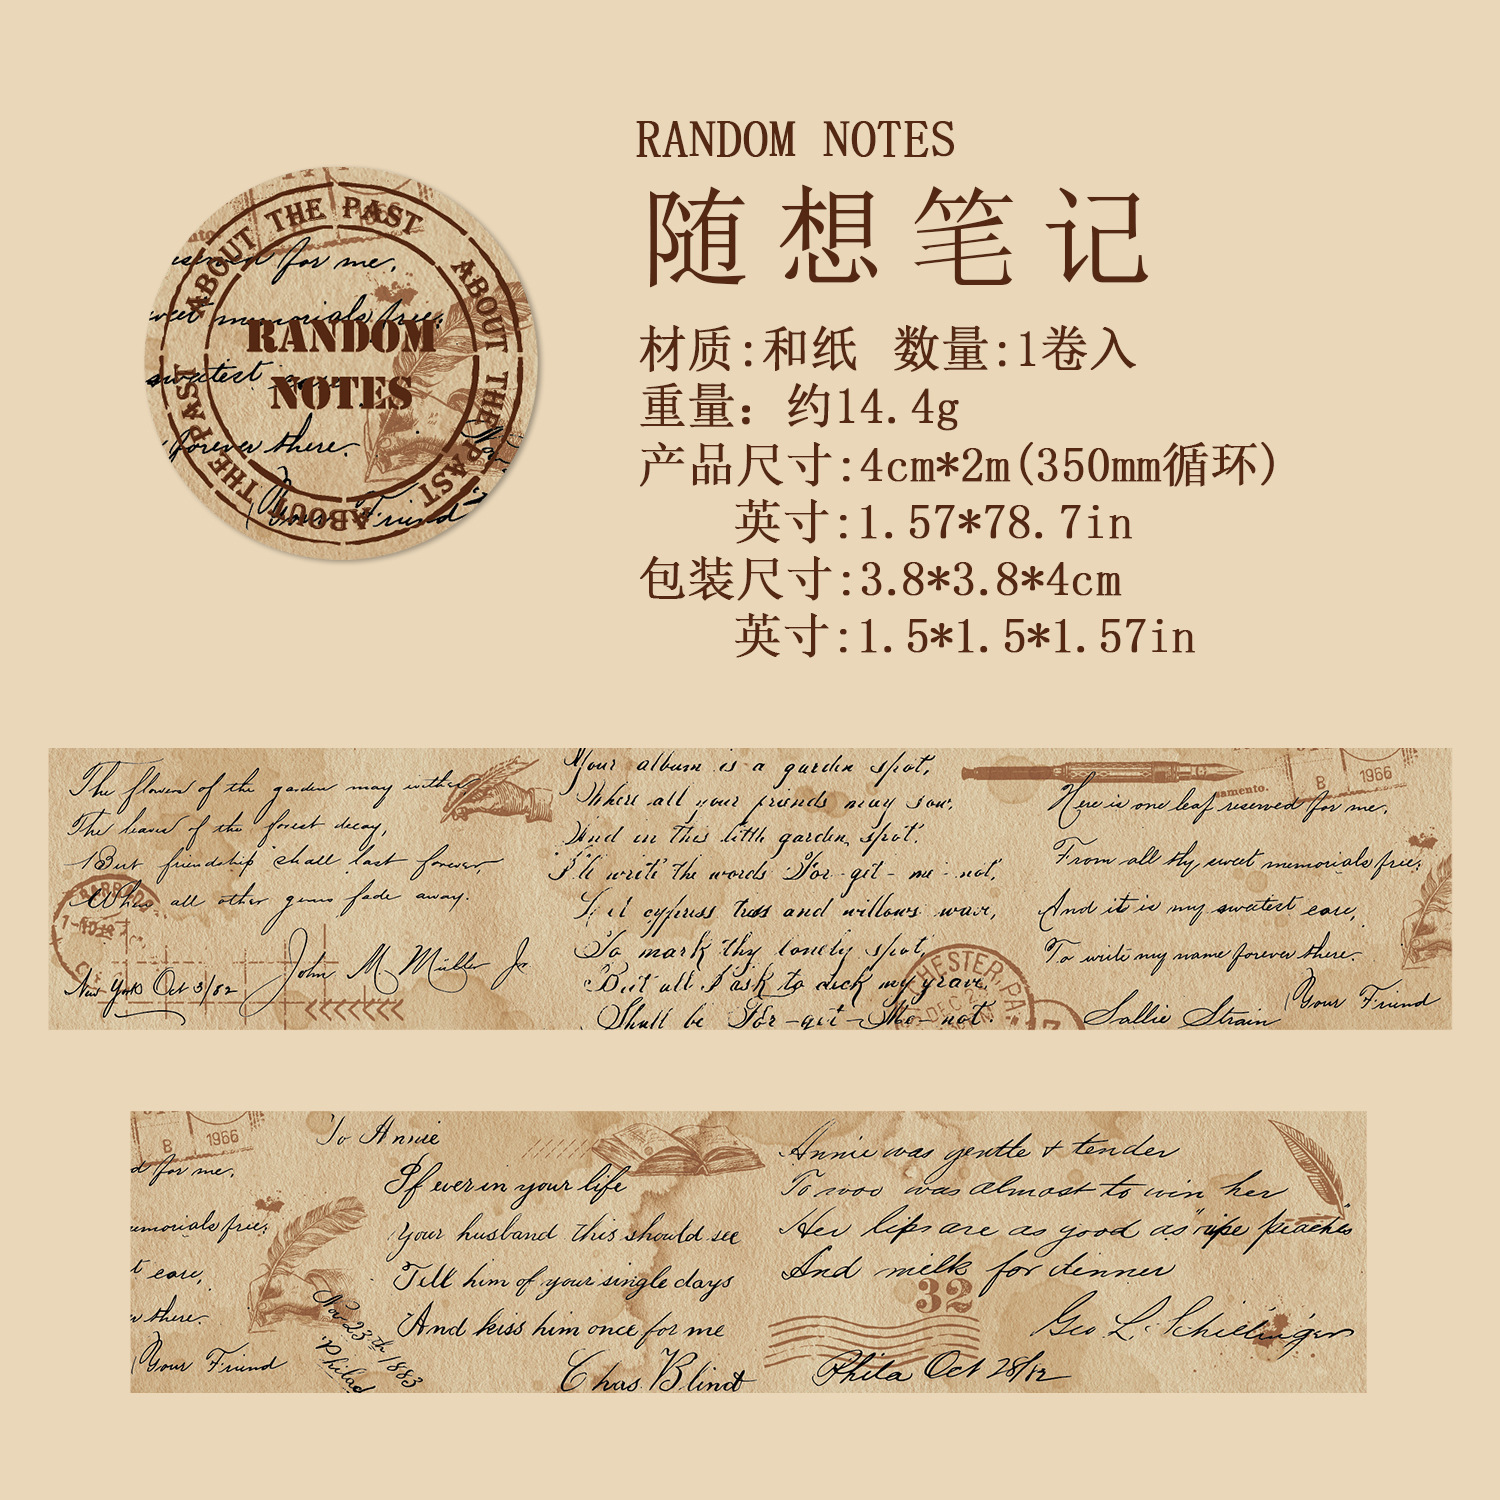 RANDOM NOTES
随想笔记
材质:和纸 数量:1卷入
重量：约14.4g
产品尺寸:4cm*2m(350mm循环)
英寸:1.57*78.7in
包装尺寸:3.8*3.8*4cm
英寸:1.5*1.5*1.57in
ABOUT THE PAST
ABOUT THE PAST
ABOUT THE PAST
for me,
sweet memorials free;
RANDOM
sweetest
NOTES
forever there.
Your Friend
The flowers of the garden may wither
The leaves of the forest decay,
But friendship shall last forever,
When all other gems fade away.
John M. Muller Jr
New York Oct 3/82
Your album is a garden spot,
Where all your friends may sow,
And in this little garden spot,
I'll write the words For-get-me-not,
Let cypress trees and willows wave,
To mark thy lonely spot,
But all I ask to deck my grave,
Shall be For-get-Me-not.
CHESTER, PA.
B
1966
Here is one leaf reserved for me,
From all thy sweet memorials free;
And it is my sweetest care,
To write my name forever there.
Your Friend
Sallie Strain
B
1966
d for me,
emorials free;
t care,
there.
Your Friend
To Annie
If ever in your life
Your husband this should see
Tell him of your single days
And kiss him once for me
Chas. Blindt
Nov 23th 1883
Philad
Annie was gentle & tender
To woo was almost to win her
Her lips are as good as "ripe peaches"
And milk for dinner
32
Geo L. Schillinger
Phila Oct 28/82